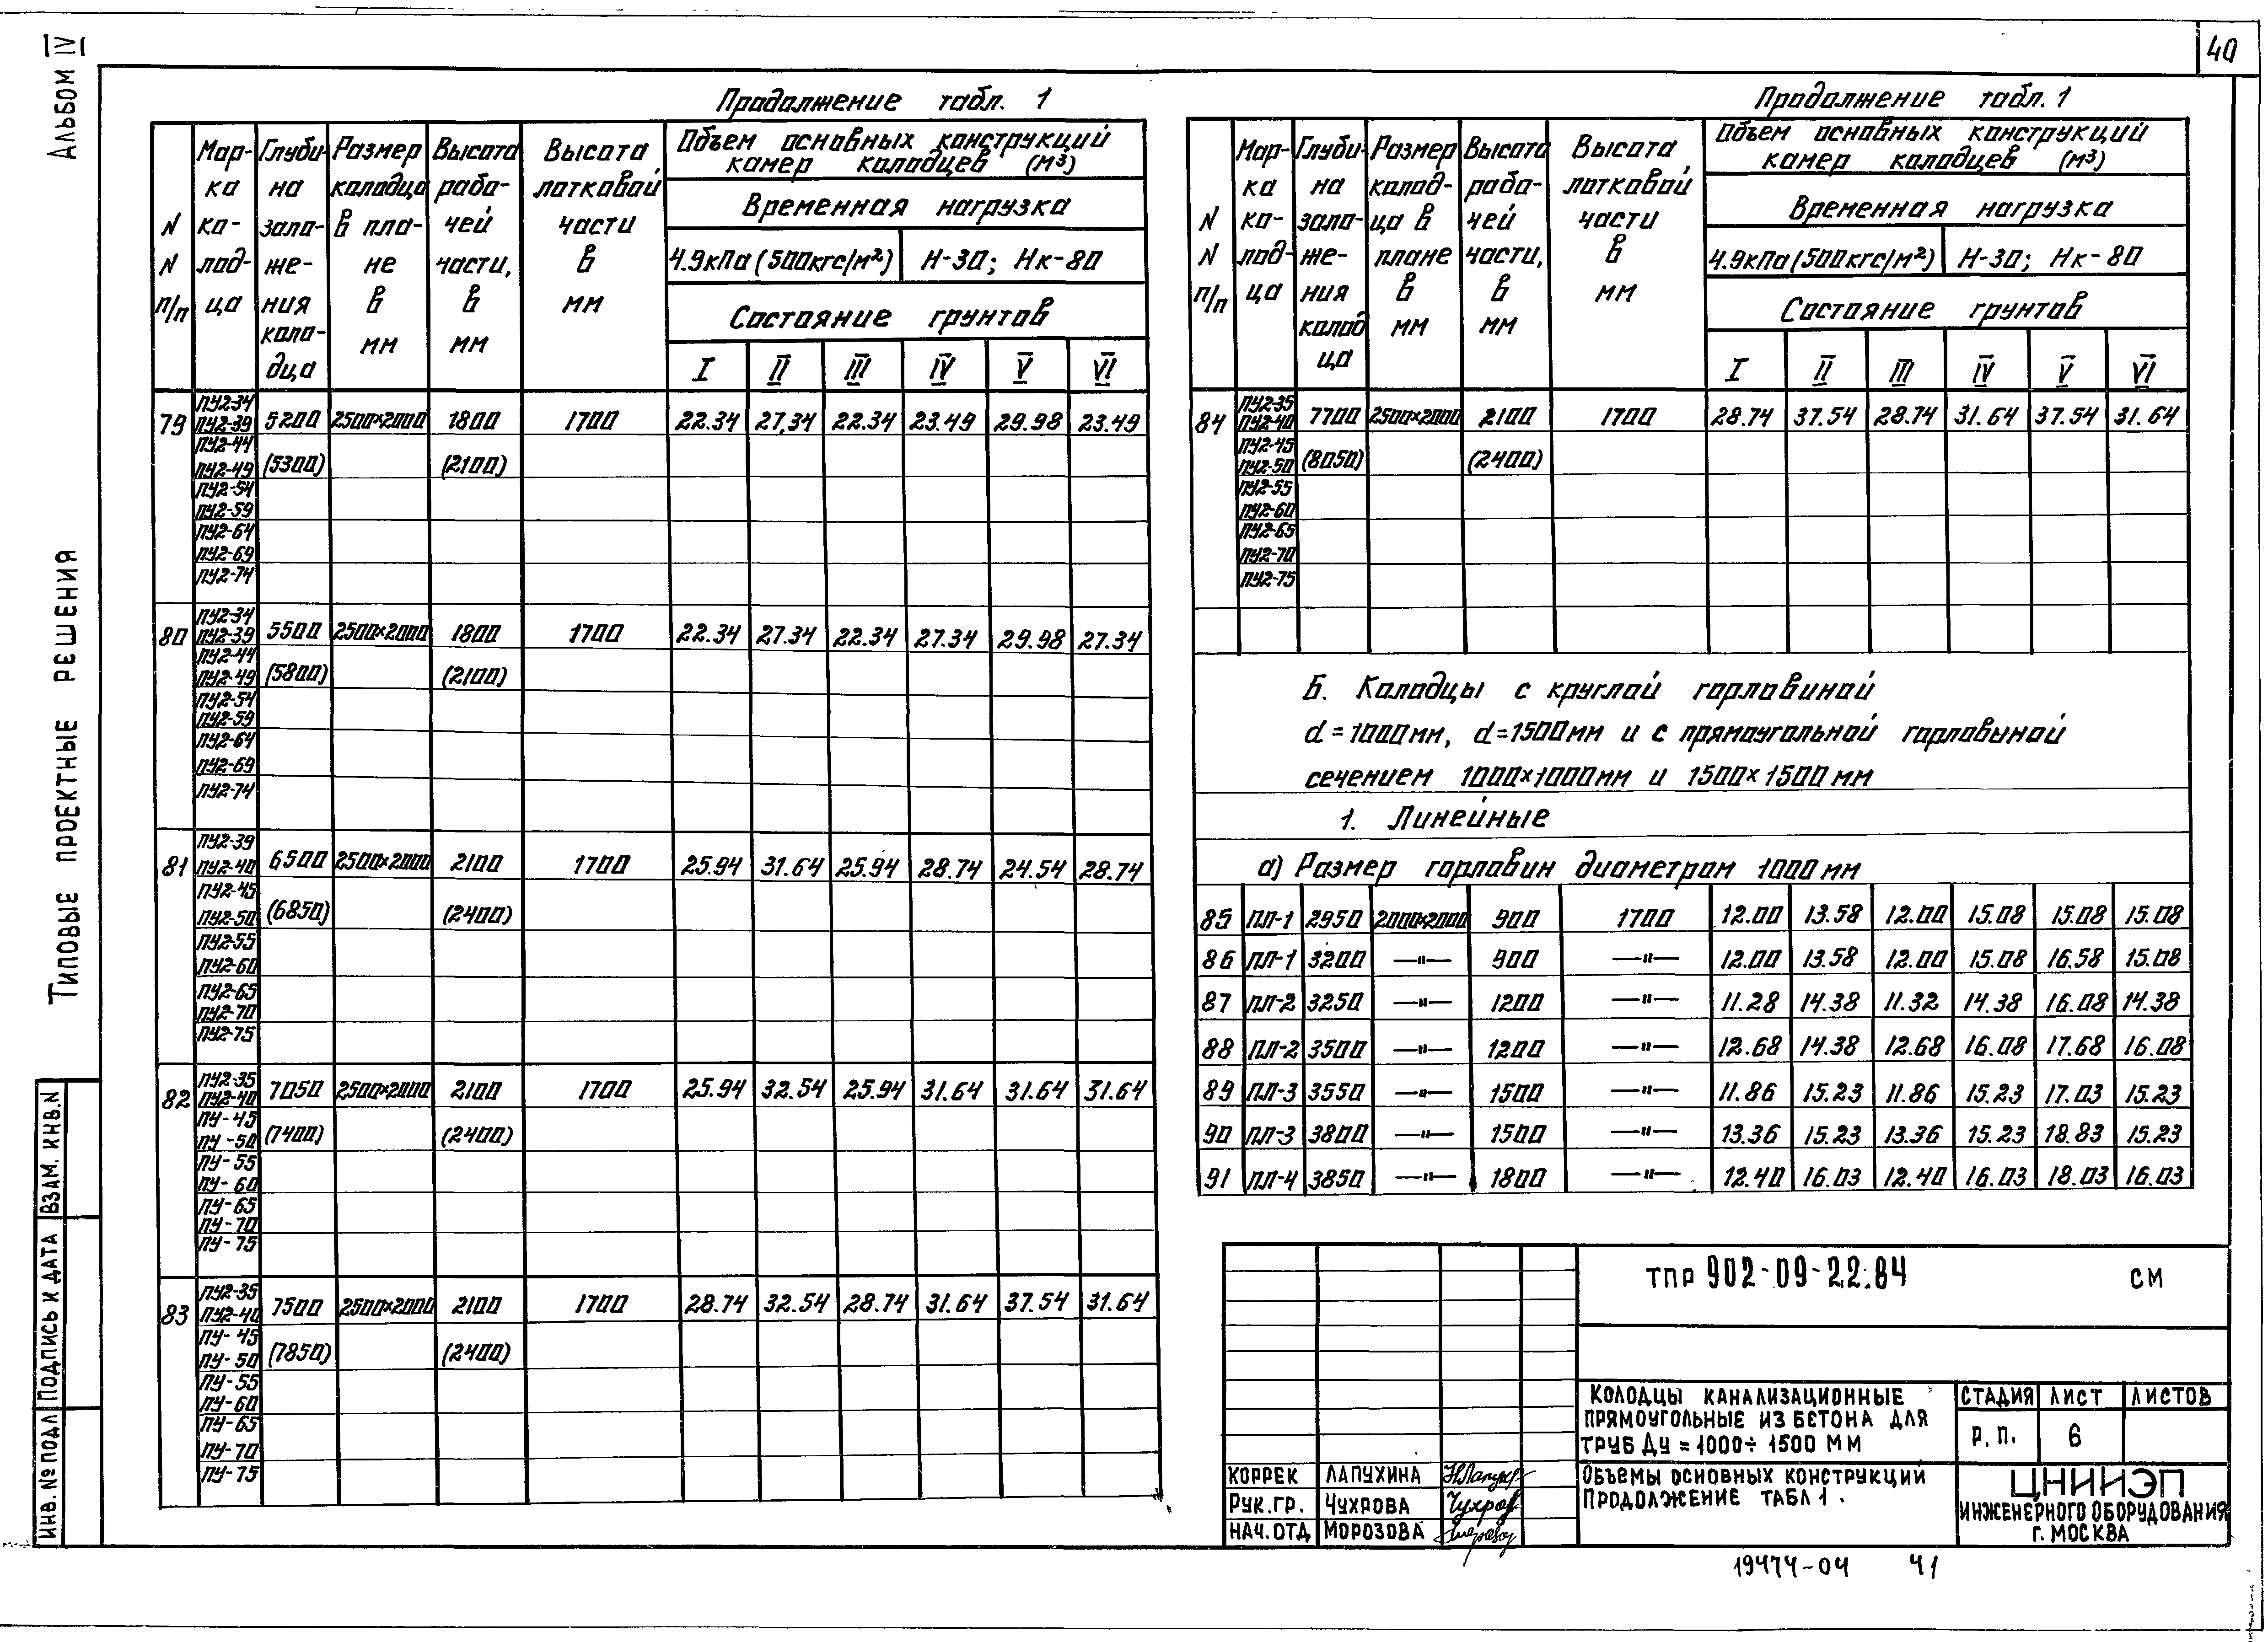 40
Альбом IV
Типовые проектные решения
Взам. инв. N
Подпись и дата
Инв. № подл
Продолжение табл. 1
N N п/п | Марка колодца | Глубина заложения колодца | Размер колодца в плане в мм | Высота рабочей части, в мм | Высота лотковой части в мм | Объем основных конструкций камер колодцев (м³)
Временная нагрузка
4.9кПа (500кгс/м²) | Н-30; Нк-80
Состояние грунтов
I | II | III | IV | V | VI
79 | ПУ2-34 ПУ2-39 | 5200 | 2500×2000 | 1800 | 1700 | 22.34 | 27,34 | 22.34 | 23.49 | 29.98 | 23.49
ПУ2-44
ПУ2-49 | (5300) | (2100)
ПУ2-54
ПУ2-59
ПУ2-64
ПУ2-69
ПУ2-74
80 | ПУ2-34 ПУ2-39 | 5500 | 2500×2000 | 1800 | 1700 | 22.34 | 27.34 | 22.34 | 27.34 | 29.98 | 27.34
ПУ2-44
ПУ2-49 | (5800) | (2100)
ПУ2-54
ПУ2-59
ПУ2-64
ПУ2-69
ПУ2-74
81 | ПУ2-39 ПУ2-40 | 6500 | 2500×2000 | 2100 | 1700 | 25.94 | 31.64 | 25.94 | 28.74 | 24.54 | 28.74
ПУ2-45
ПУ2-50 | (6850) | (2400)
ПУ2-55
ПУ2-60
ПУ2-65
ПУ2-70
ПУ2-75
82 | ПУ2-35 ПУ2-40 | 7050 | 2500×2000 | 2100 | 1700 | 25.94 | 32.54 | 25.94 | 31.64 | 31.64 | 31.64
ПУ-45
ПУ-50 | (7400) | (2400)
ПУ-55
ПУ-60
ПУ-65
ПУ-70
ПУ-75
83 | ПУ2-35 ПУ2-40 | 7500 | 2500×2000 | 2100 | 1700 | 28.74 | 32.54 | 28.74 | 31.64 | 37.54 | 31.64
ПУ-45
ПУ-50 | (7850) | (2400)
ПУ-55
ПУ-60
ПУ-65
ПУ-70
ПУ-75
Продолжение табл. 1
N N п/п | Марка колодца | Глубина заложения колодца | Размер колодца в плане в мм | Высота рабочей части, в мм | Высота лотковой части в мм | Объем основных конструкций камер колодцев (м³)
Временная нагрузка
4.9кПа (500кгс/м²) | Н-30; Нк-80
Состояние грунтов
I | II | III | IV | V | VI
84 | ПУ2-35 ПУ2-40 | 7700 | 2500×2000 | 2100 | 1700 | 28.74 | 37.54 | 28.74 | 31.64 | 37.54 | 31.64
ПУ2-45
ПУ2-50 | (8050) | (2400)
ПУ2-55
ПУ2-60
ПУ2-65
ПУ2-70
ПУ2-75
Б. Колодцы с круглой горловиной
d=1000мм, d=1500мм и с прямоугольной горловиной
сечением 1000×1000мм и 1500×1500мм
1. Линейные
а) Размер горловин диаметром 1000мм
85 | ПЛ-1 | 2950 | 2000×2000 | 900 | 1700 | 12.00 | 13.58 | 12.00 | 15.08 | 15.08 | 15.08
86 | ПЛ-1 | 3200 | —"— | 900 | —"— | 12.00 | 13.58 | 12.00 | 15.08 | 16.58 | 15.08
87 | ПЛ-2 | 3250 | —"— | 1200 | —"— | 11.28 | 14.38 | 11.32 | 14.38 | 16.08 | 14.38
88 | ПЛ-2 | 3500 | —"— | 1200 | —"— | 12.68 | 14.38 | 12.68 | 16.08 | 17.68 | 16.08
89 | ПЛ-3 | 3550 | —"— | 1500 | —"— | 11.86 | 15.23 | 11.86 | 15.23 | 17.03 | 15.23
90 | ПЛ-3 | 3800 | —"— | 1500 | —"— | 13.36 | 15.23 | 13.36 | 15.23 | 18.83 | 15.23
91 | ПЛ-4 | 3850 | —"— | 1800 | —"— | 12.40 | 16.03 | 12.40 | 16.03 | 18.03 | 16.03
ТПР 902-09-22.84 СМ
Колодцы канализационные
прямоугольные из бетона для
труб Ду = 1000÷1500 мм
Стадия | Лист | Листов
Р.П. | 6
Коррек | Лапухина
Рук.гр. | Чухрова
Нач.отд | Морозова
Объемы основных конструкций
Продолжение табл 1.
ЦНИИЭП
инженерного оборудования
г. Москва
19474-04 41